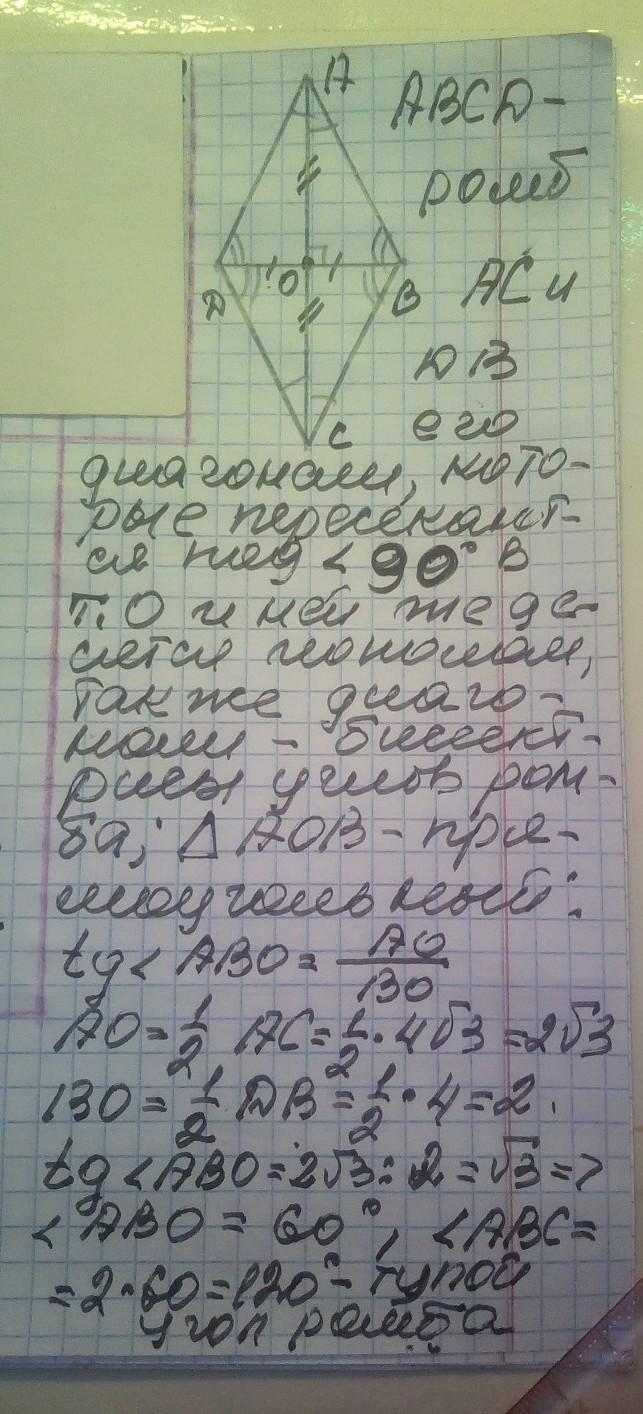 A
ABCD -
ромб
O
D
B
AC и
DB
C
его
диагонали, кото-
рые пересекают-
ся под < 90° в
т. O и ней же де-
лятся пополам,
также диаго-
нали - биссект-
рисы углов ром-
ба; △ AOB - пря-
моугольный:
tg < ABO = AO
BO
AO = 1/2 AC = 1/2 · 4√3 = 2√3
BO = 1/2 DB = 1/2 · 4 = 2.
tg < ABO = 2√3 : 2 = √3 =>
< ABO = 60°, < ABC =
= 2 · 60 = 120° - тупой
угол ромба